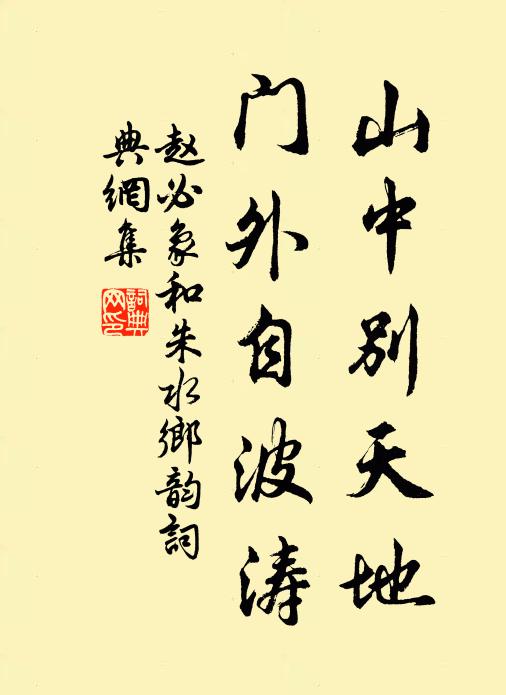 山中别天地
门外自波涛
赵必象和朱水鄉韵詞
典網集
詞典
网印